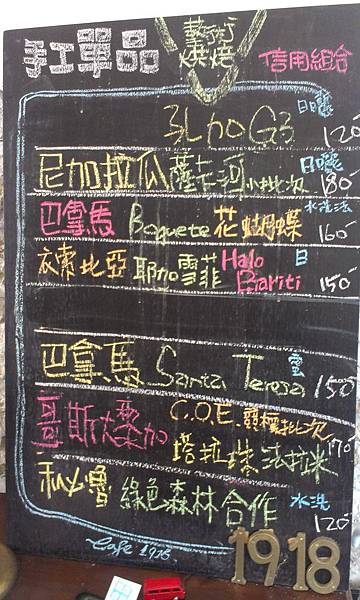 手工單品
藝術
烘焙
信用組合
孔加G3 日曬 120
尼加拉瓜 薩卡河 小批次 日曬 180
巴拿馬 Boquete 花蝴蝶 水洗 160
衣索比亞 耶加雪菲 Halo Bariti 日 150
巴拿馬 Santa Teresa 蜜 150
哥斯大黎加 C.O.E. 競標批次
塔拉珠 法拉米 170
秘魯 綠色森林合作 水洗 120
Cafe 1918
1918